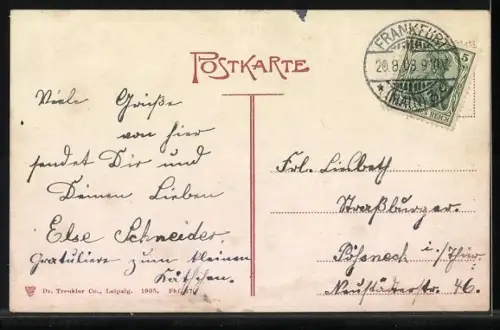 POSTKARTE
FRANKFURT
20.8.08.9-10V.
* (MAIN)
5
Viele Grüße
von hier
sendet Dir und
Deinen Lieben
Else Schneider.
Gratuliere zum kleinen
Käthchen.
Frl. Lisbeth
Straßburger.
Pößneck i/Thür.
Neustädterstr. 46.
Dr. Trenkler Co., Leipzig. 1905.